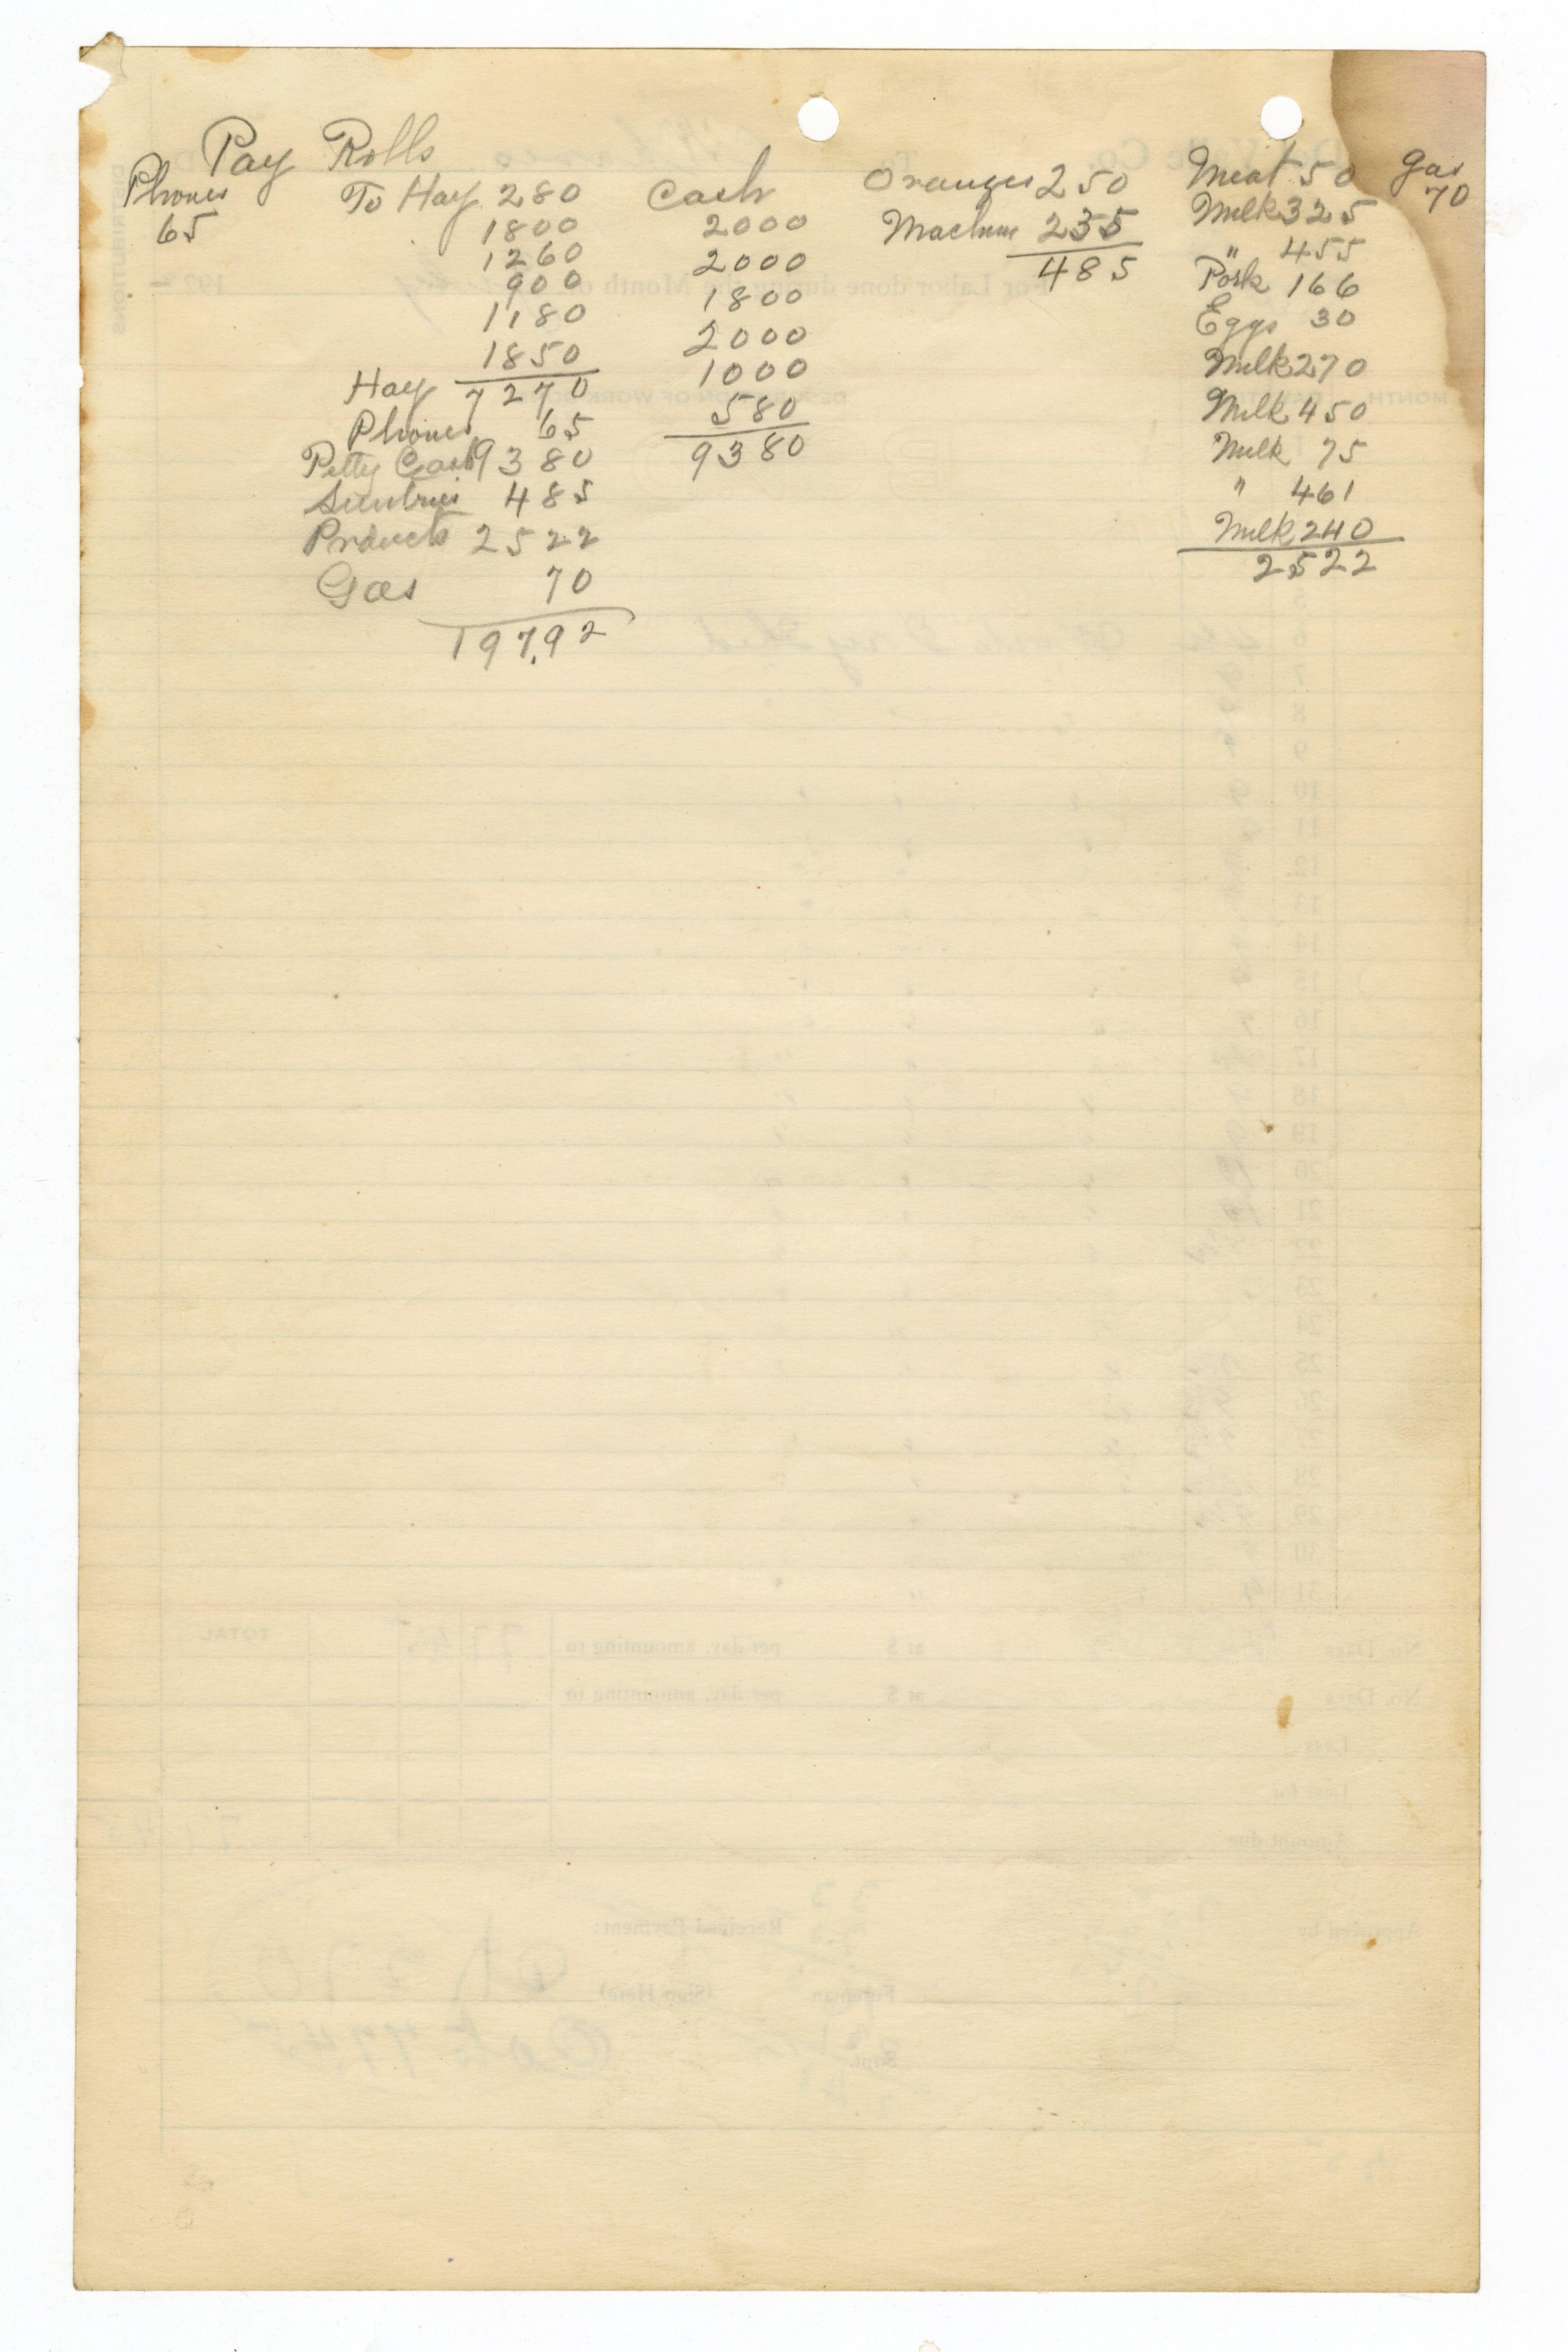 Pay Rolls
Phones
65
To Hay 280
1800
1260
900
1180
1850
Hay 7270
Phones 65
Petty Cash 9380
Sundries 485
Products 2522
Gas 70
197.92
Cash
2000
2000
1800
2000
1000
580
9380
Oranges 250
235
485
Meat 50
Milk 325
" 455
Pork 166
Eggs 30
Milk 270
Milk 450
Milk 75
" 461
Milk 240
2522
Gas
70